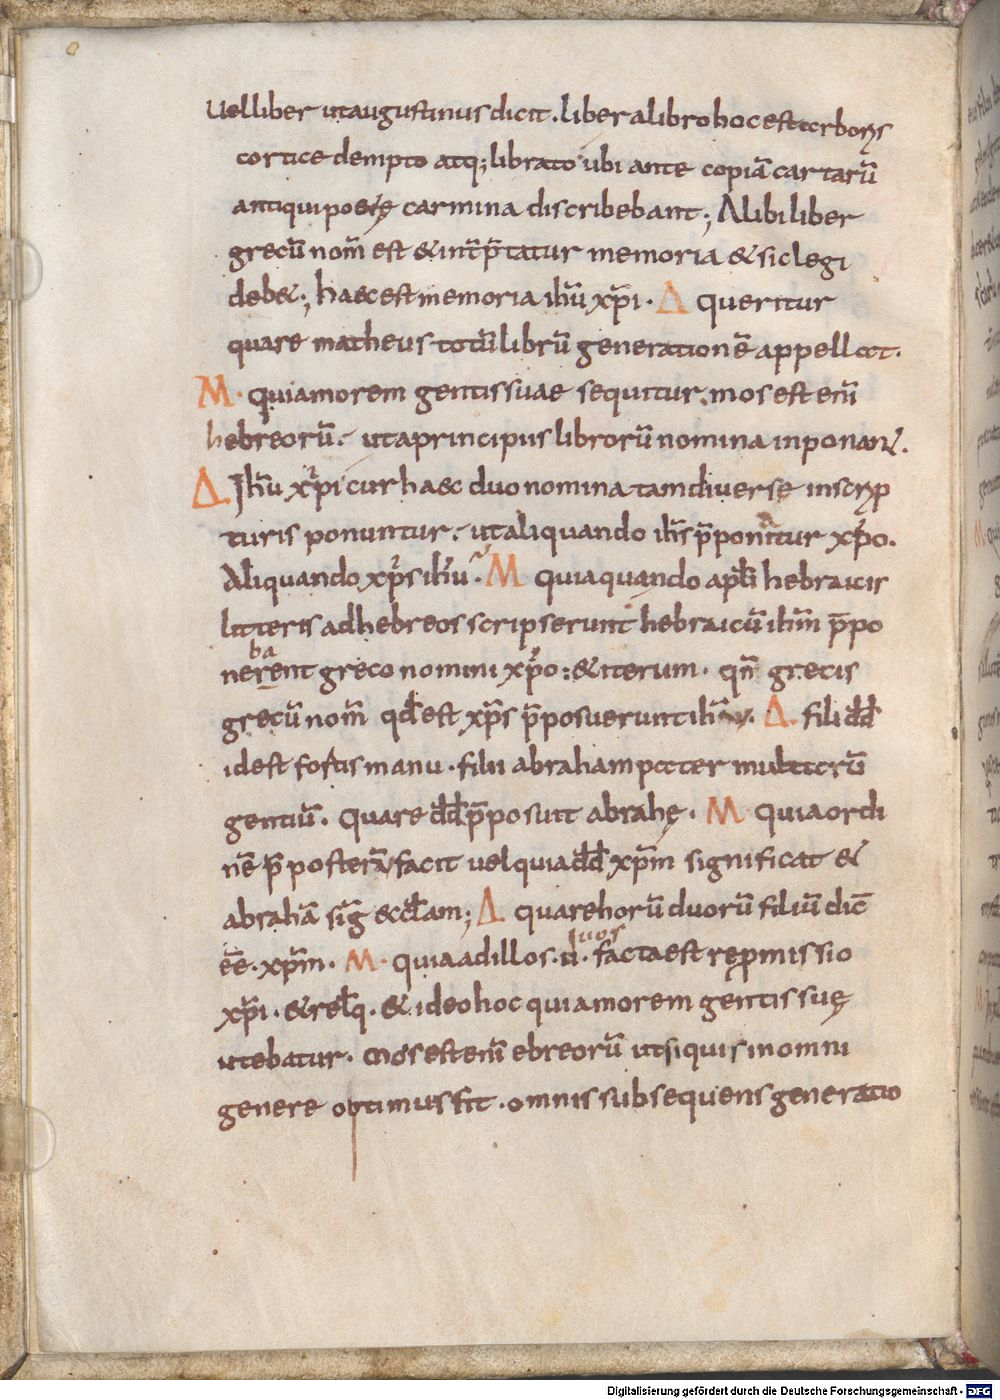 Uel liber ut augustinus dicit. liber a libro hoc est arboris
cortice dempto atq; librato ubi ante copiā cartarū
antiqui poetę carmina discribebant; Alibi liber
grecū nom̄ est & int̄p̄tatur memoria & sic legi
deb&; haec est memoria ihū xp̄i. Δ queritur
quare matheus totū librū generationē appellat.
M. quia morem gentis suae sequitur. mos est eni̅
hebreorū. ut a principiis librorū nomina inponant.
Δ Ihū xp̄i cur haec duo nomina tam diverse in scrip
turis ponuntur. ut aliquando ihs̄ p̄ponatur xp̄o.
Aliquando xp̄s ihū. M quia quando apl̄i hebraicis
litteris ad hebreos scripserunt hebraicū ihm̄ p̄po
nerent greco nomini xp̄o: & iterum. qn̄ grecis
ba
grecū nom̄ qđ est xp̄s p̄posuerunt. Δ. fili dđ
id est fortis manu. filii abraham pater multarū
gentiū. Quare dđ p̄posuit abrahę. M quia ordi
nē p̄posterū facit uel quia dđ xp̄m significat &
abrahā siḡ eccl̄am; Δ quare horū duorū filiū dic̄
ēē. xp̄m. M. quia ad illos. ii. facta est repmissio
luos
xp̄i. & relq̄. & ideo hoc quia morem gentis suę
utebatur. Mos est eni̅ ebreorū ut si quis in omni
genere optimus sit. omnis subsequens generatio
Digitalisierung gefördert durch die Deutsche Forschungsgemeinschaft - DFG